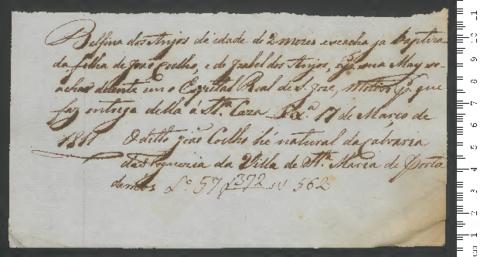 Delfina dos Anjos de idade de 2 mezes e se acha ja baptiza
da filha de José Coelho, e de Izabel dos Anjos, cuja May se
acha doente em o Ospital Real de S. Joze, motivo pr que
faz entrega della á Sta Caza Lxa 17 de Março de
1811 O ditto José Coelho hé natural da
da Freguezia da Villa de Sta Maria de Porto
de Lo 57 f 372 No 562